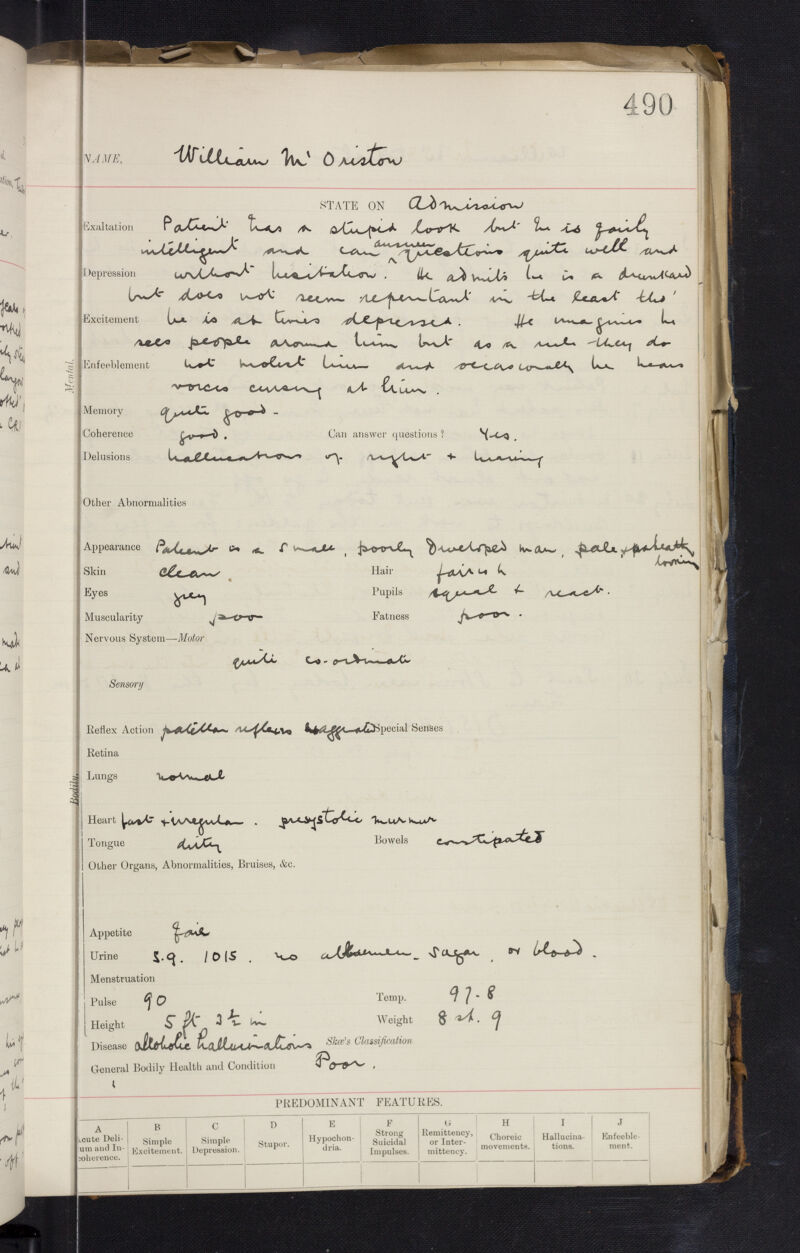 490
NAME, William Mc Oriston
STATE ON Admission
Exaltation Patient has a stupid look but he is fairly
intelligent and can answer questions quite well and
Depression without hesitation. He admits he is a drunkard
but does not seem repentant in the least tho'
Excitement he is at times depressed. He imagines he
sees people around him but as a rule they do
Enfeeblement not molest him and occasionally he hears
voices cursing at him.
Mental.
Memory quite good -
Coherence good. Can answer questions? Yes.
Delusions hallucinations of sight + hearing
Other Abnormalities
Appearance Patient is a small, poorly developed man, pale + apathetic
looking
Skin clean. Hair fairish
Eyes grey Pupils equal & react.
Muscularity poor Fatness poor.
Nervous System—Motor
quite co-ordinate
Sensory
Reflex Action patellar reflexes exaggerated Special Senses
Retina
Bodily.
Lungs normal
Heart fast + irregular. presystolic murmur
Tongue dirty Bowels constipated
Other Organs, Abnormalities, Bruises, &c.
Appetite fair
Urine S.g. 1015. no albumen, sugar, or blood.
Menstruation
Pulse 90 Temp. 97.8
Height 5 ft 3½ in Weight 8 st. 9
Disease alcoholic hallucinations Skae's Classification
General Bodily Health and Condition Poor.
PREDOMINANT FEATURES.
A B C D E F G H I J
Acute Delirium and Incoherence. Simple Excitement. Simple Depression. Stupor. Hypochondria. Strong Suicidal Impulses. Remittency, or Intermittency. Choreic movements. Hallucinations. Enfeeblement.